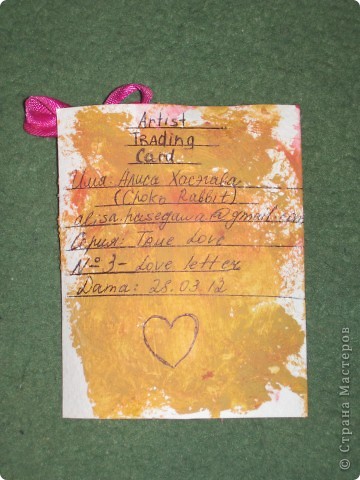 Artist
Trading
Card
Имя: Алиса Хасэгава
(Choko Rabbit)
alisa.hasegawa@gmail.com
Серия: Took Love
№ 3 - Love letter
Дата: 28.03.12
© Страна Мастеров